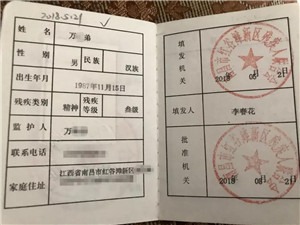 2018.5.21
姓名 万 弟
性别 男 民族 汉族
出生年月 1987年11月15日
残疾类别 精神 残疾等级 叁级
监护人 万
联系电话
家庭住址 江西省南昌市红谷滩新区
填发机关
2018 05 21
填发人 李春花
批准机关
2018 05 21